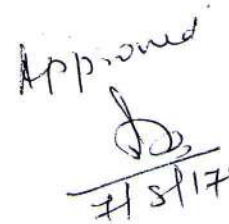 Approved
7/8/17